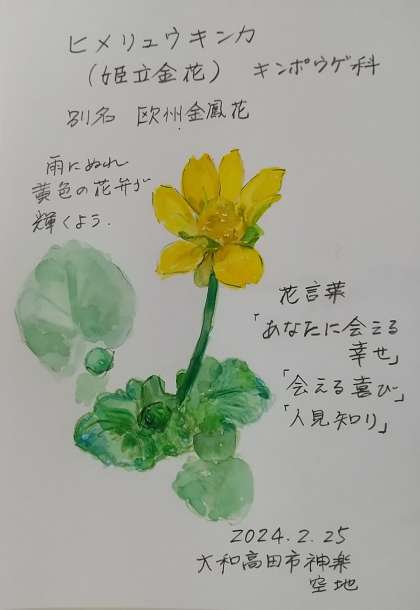 ヒメリュウキンカ
(姫立金花) キンポウゲ科
別名 欧州金鳳花
雨にぬれ
黄色の花弁が
輝くよう.
花言葉
「あなたに会える
幸せ」
「会える喜び」
「人見知り」
2024.2.25
大和高田市神楽
空地